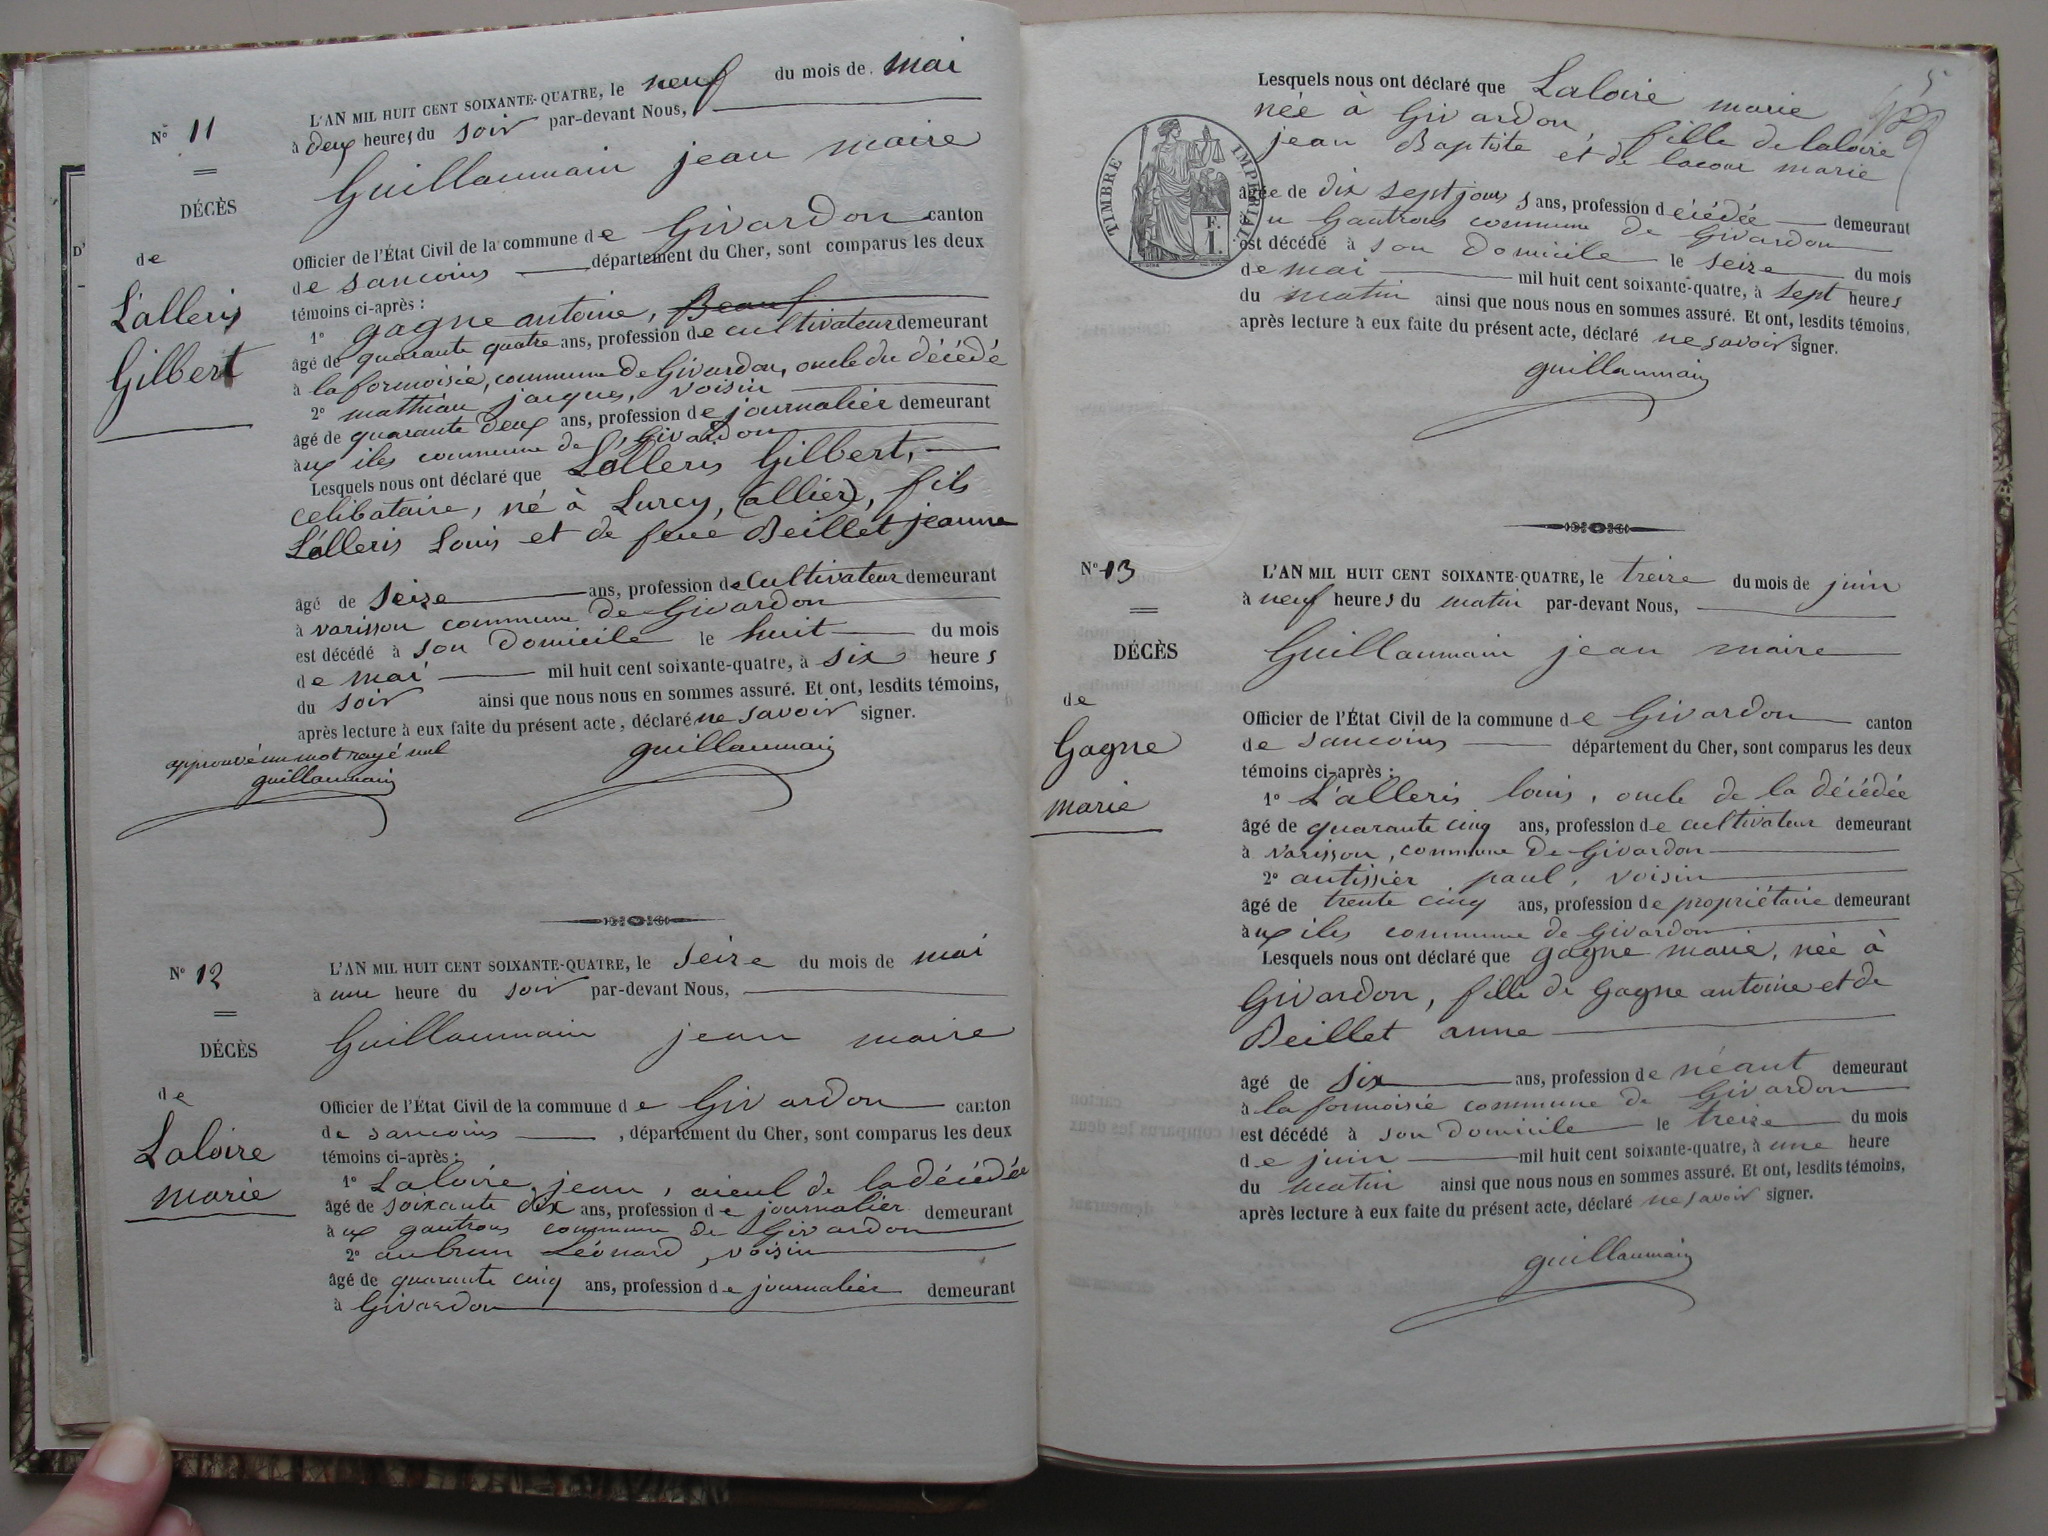 N° 11
DÉCÈS
de
L'alleris
Gilbert
L'AN MIL HUIT CENT SOIXANTE-QUATRE, le neuf du mois de mai
à deux heures du soir par-devant Nous,
Guillaumain jean maire
Officier de l'État Civil de la commune de Givardon canton
de sancoins département du Cher, sont comparus les deux
témoins ci-après :
1° gagne antoine, Beauf
âgé de quarante quatre ans, profession de cultivateur demeurant
à la formoisie, commune de Givardon, oncle du décédé
2° mathiau jacques, voisin
âgé de quarante deux ans, profession de journalier demeurant
aux iles commune de Givardon
Lesquels nous ont déclaré que L'alleris Gilbert,
celibataire, né à Lurcy, (allier), fils
L'alleris Louis et de feue Deillet jeanne
âgé de seize ans, profession de cultivateur demeurant
à varisson commune de Givardon
est décédé à son domicile le huit du mois
de mai mil huit cent soixante-quatre, à six heures
du soir ainsi que nous nous en sommes assuré. Et ont, lesdits témoins,
après lecture à eux faite du présent acte, déclaré ne savoir signer.
approuvé un mot rayé nul
guillaumain
guillaumain
N° 12
DÉCÈS
de
Laloire
marie
L'AN MIL HUIT CENT SOIXANTE-QUATRE, le seize du mois de mai
à une heure du soir par-devant Nous,
Guillaumain jean maire
Officier de l'État Civil de la commune de Givardon canton
de sancoins , département du Cher, sont comparus les deux
témoins ci-après :
1° Laloire, jean, aieul de la décédée
âgé de soixante dix ans, profession de journalier demeurant
aux gautrous commune de Givardon
2° aubrun Léonard, voisin
âgé de quarante cinq ans, profession de journalier demeurant
à Givardon
5
Lesquels nous ont déclaré que Laloire marie
née à Givardon, fille de laloire
jean Baptiste et de lacour marie
TIMBRE IMPERIAL
F.
1.
âgée de dix sept jours ans, profession décédée demeurant
au Gautrous commune de Givardon
est décédé à son domicile le seize du mois
de mai mil huit cent soixante-quatre, à sept heures
du matin ainsi que nous nous en sommes assuré. Et ont, lesdits témoins,
après lecture à eux faite du présent acte, déclaré ne savoir signer.
guillaumain
N° 13
DÉCÈS
de
Gagne
marie
L'AN MIL HUIT CENT SOIXANTE-QUATRE, le treize du mois de juin
à neuf heures du matin par-devant Nous,
Guillaumain jean maire
Officier de l'État Civil de la commune de Givardon canton
de sancoins département du Cher, sont comparus les deux
témoins ci-après :
1° L'alleris louis, oncle de la décédée
âgé de quarante cinq ans, profession de cultivateur demeurant
à varisson, commune de Givardon
2° autissier paul, voisin
âgé de trente cinq ans, profession de propriétaire demeurant
aux iles commune de Givardon
Lesquels nous ont déclaré que gagne marie, née à
Givardon, fille de Gagne antoine et de
Deillet anne
âgé de six ans, profession de néant demeurant
à la formoisie commune de Givardon
est décédé à son domicile le treize du mois
de juin mil huit cent soixante-quatre, à une heure
du matin ainsi que nous nous en sommes assuré. Et ont, lesdits témoins,
après lecture à eux faite du présent acte, déclaré ne savoir signer.
guillaumain